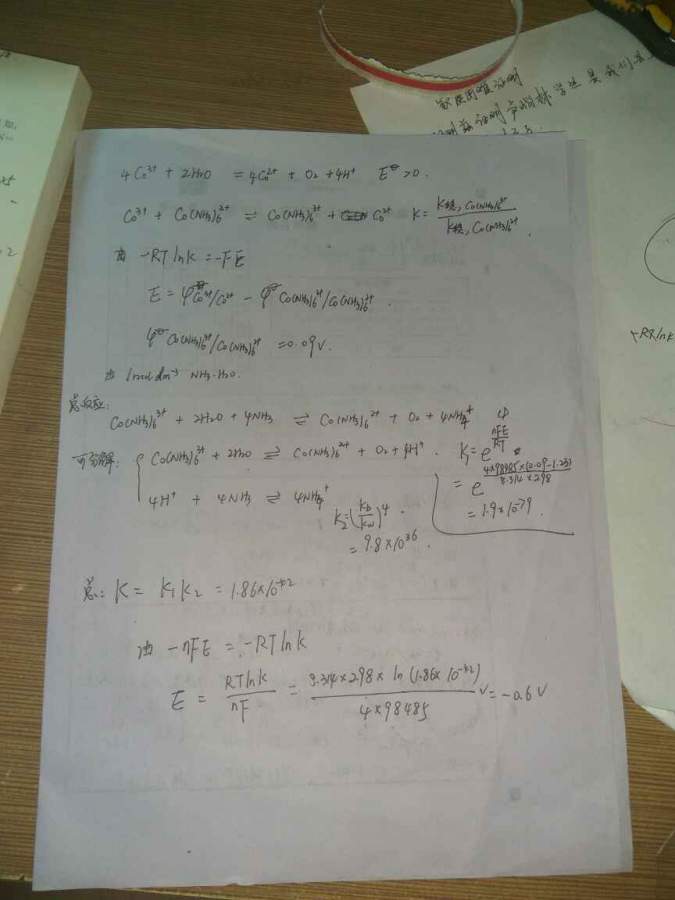 4Co³⁺ + 2H₂O = 4Co²⁺ + O₂ + 4H⁺ E^⊖ > 0.
Co³⁺ + Co(NH₃)₆²⁺ ⇌ Co(NH₃)₆³⁺ + Co²⁺ K = K稳,Co(NH₃)₆³⁺ / K稳,Co(NH₃)₆²⁺.
由 -RTlnK = -FE
E = φ^⊖Co³⁺/Co²⁺ - φ^⊖Co(NH₃)₆³⁺/Co(NH₃)₆²⁺.
φ^⊖Co(NH₃)₆³⁺/Co(NH₃)₆²⁺ = 0.09V.
当 1mol·dm⁻³ NH₃·H₂O.
总反应:
Co(NH₃)₆³⁺ + 2H₂O + 4NH₃ ⇌ Co(NH₃)₆²⁺ + O₂ + 4NH₄⁺
可分解: Co(NH₃)₆³⁺ + 2H₂O ⇌ Co(NH₃)₆²⁺ + O₂ + 4H⁺. K₁ = e^(nFE/RT)
= e^(4×98485×(0.09-1.23)/8.314×298)
= 1.9×10⁻⁷⁹
4H⁺ + 4NH₃ ⇌ 4NH₄⁺
K₂ = (Kb/Kw)⁴.
= 9.8×10³⁶.
总: K = K₁K₂ = 1.86×10⁻⁴²
由 -nFE = -RTlnK
E = RTlnK / nF = 8.314×298×ln(1.86×10⁻⁴²) / 4×98485 V = -0.6V
-RTlnK